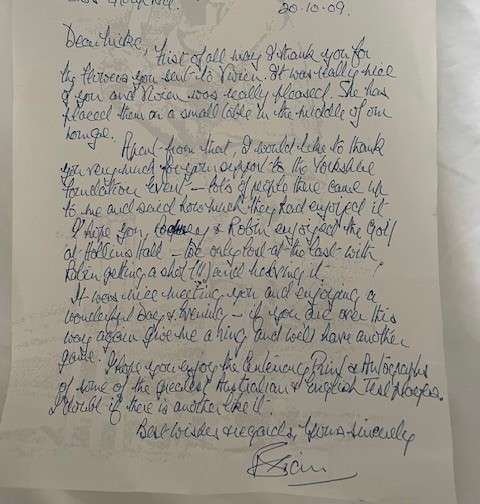 20.10.09.
Dear Mike,
First of all may I thank you for
the flowers you sent to Vivien. It was really nice
of you and Vivien was really pleased. She has
placed them on a small table in the middle of our
lounge.
Apart from that, I would like to thank
you very much for your support to the Yorkshire
Foundation Event – lots of people there came up
to me and said how much they had enjoyed it
I hope you & Robin enjoyed the Golf
at Hollins Hall – we only lost at the last with
Robin getting a shot (!!) and halving it.
It was nice meeting you and enjoying a
wonderful Day & Evening – if you are over this
way again give me a ring and we'll have another
game.
I hope you enjoy the Centenary Print & Autographs
of some of the Greatest Australian & English Test players.
I doubt if there is another like it.
Best Wishes & regards, Yours Sincerely